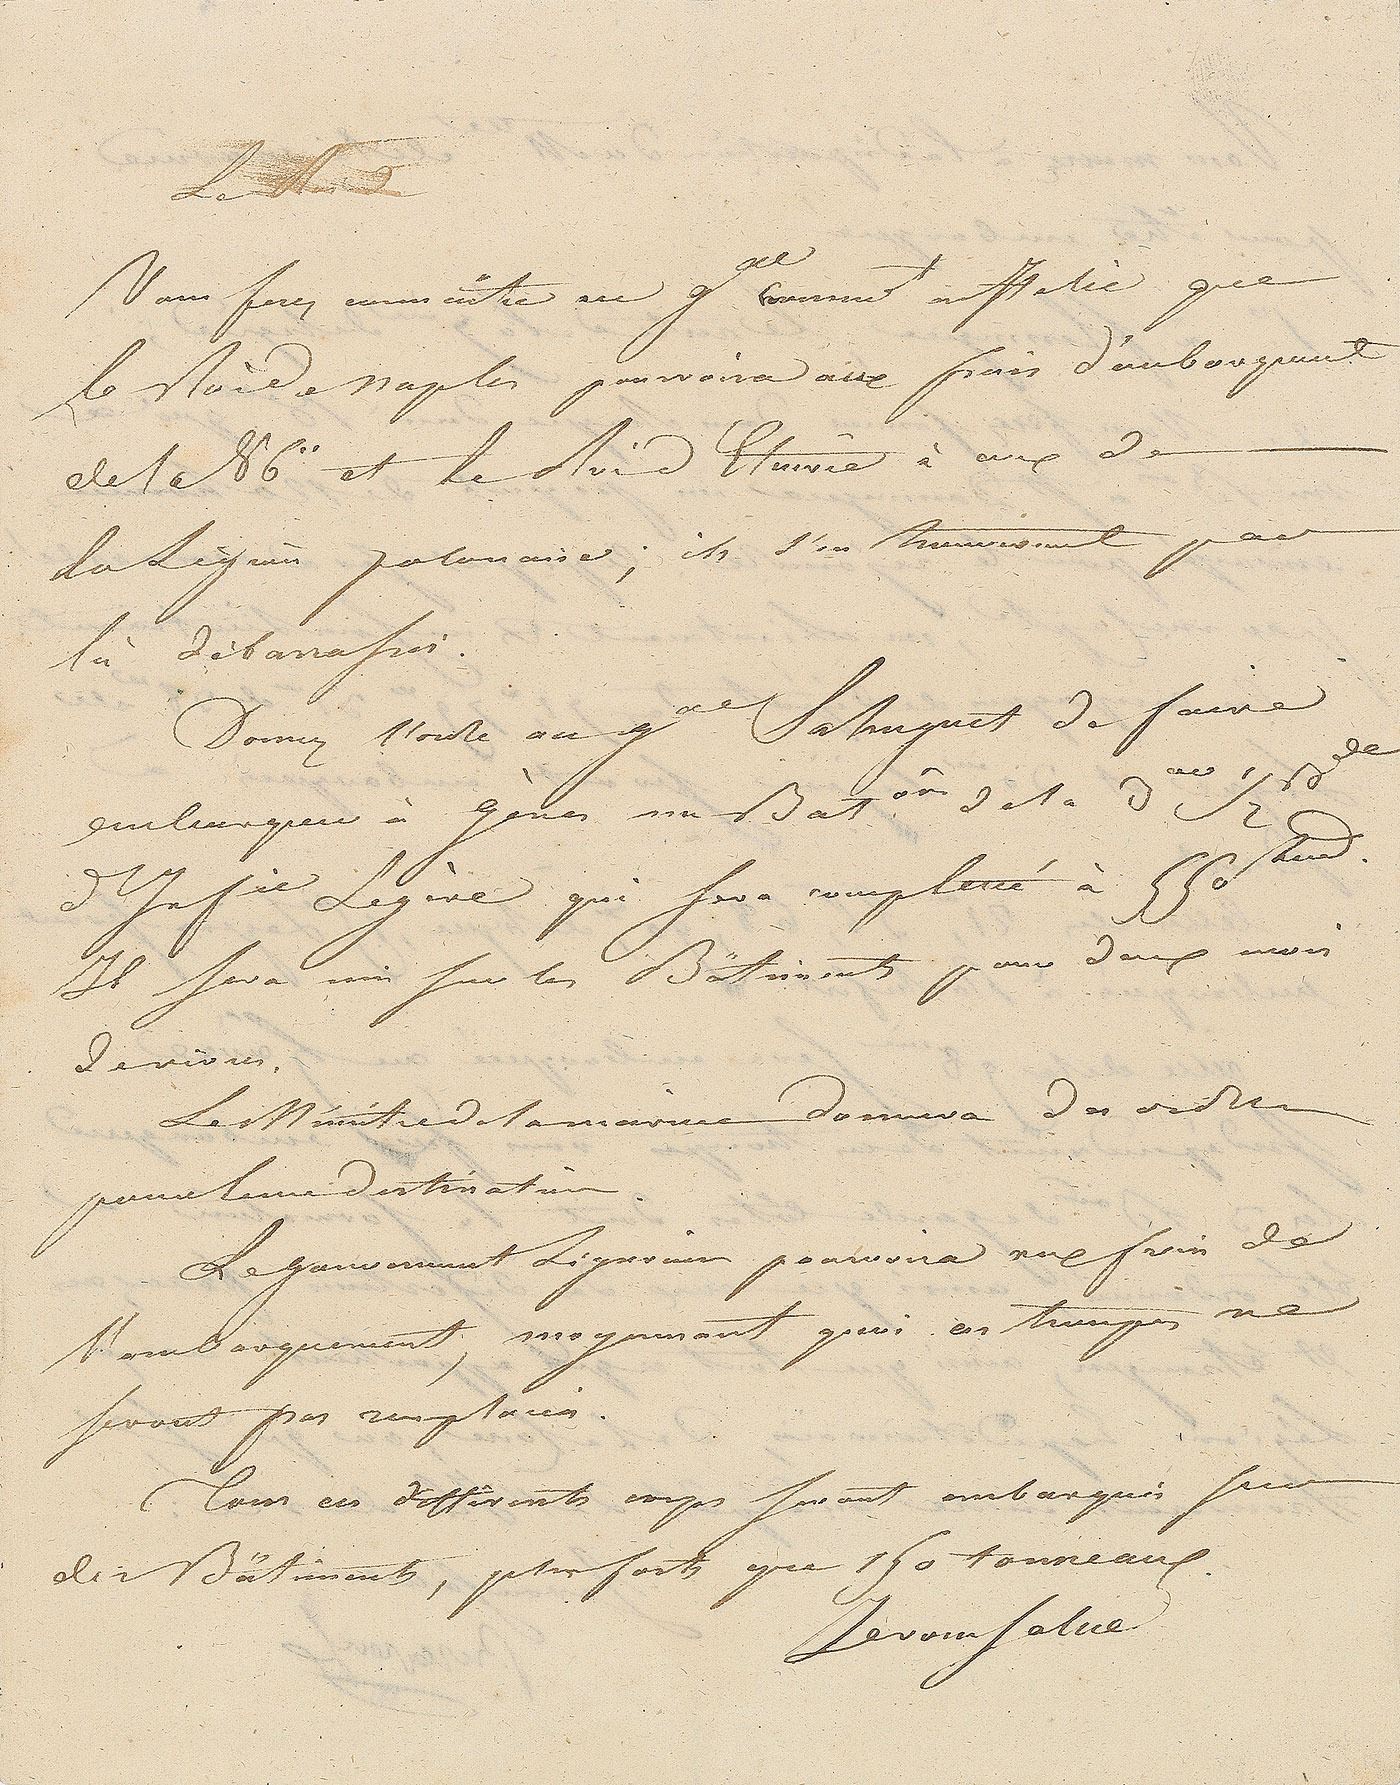 Le Roi d
Vous ferez connaître au g.al comm.t en Italie que
le Roi de Naples pourvoira aux frais d'embarquement
de la 86.e et le Roi d'Etrurie à ceux de
la Légion polonaise ; ils s'en trouveront par
là débarrassés.
Donnez l'ordre au g.al Sahuguet de faire
embarquer à Gênes un Bat.on de la d.re 1/2 B.de
d'Inf.ie Légère qui sera completté à 550 hom.
Il sera mis sur les Bâtiments pour deux mois
de vivres.
Le Ministre de la marine donnera des ordres
pour leur destination.
Le gouvernement Ligurien pourvoira aux frais de
l'embarquement, moyennant quoi ces troupes ne
seront pas remplacées.
Tous ces différents corps seront embarqués sur
des Bâtiments, plus forts que 150 tonneaux.
Je vous salue